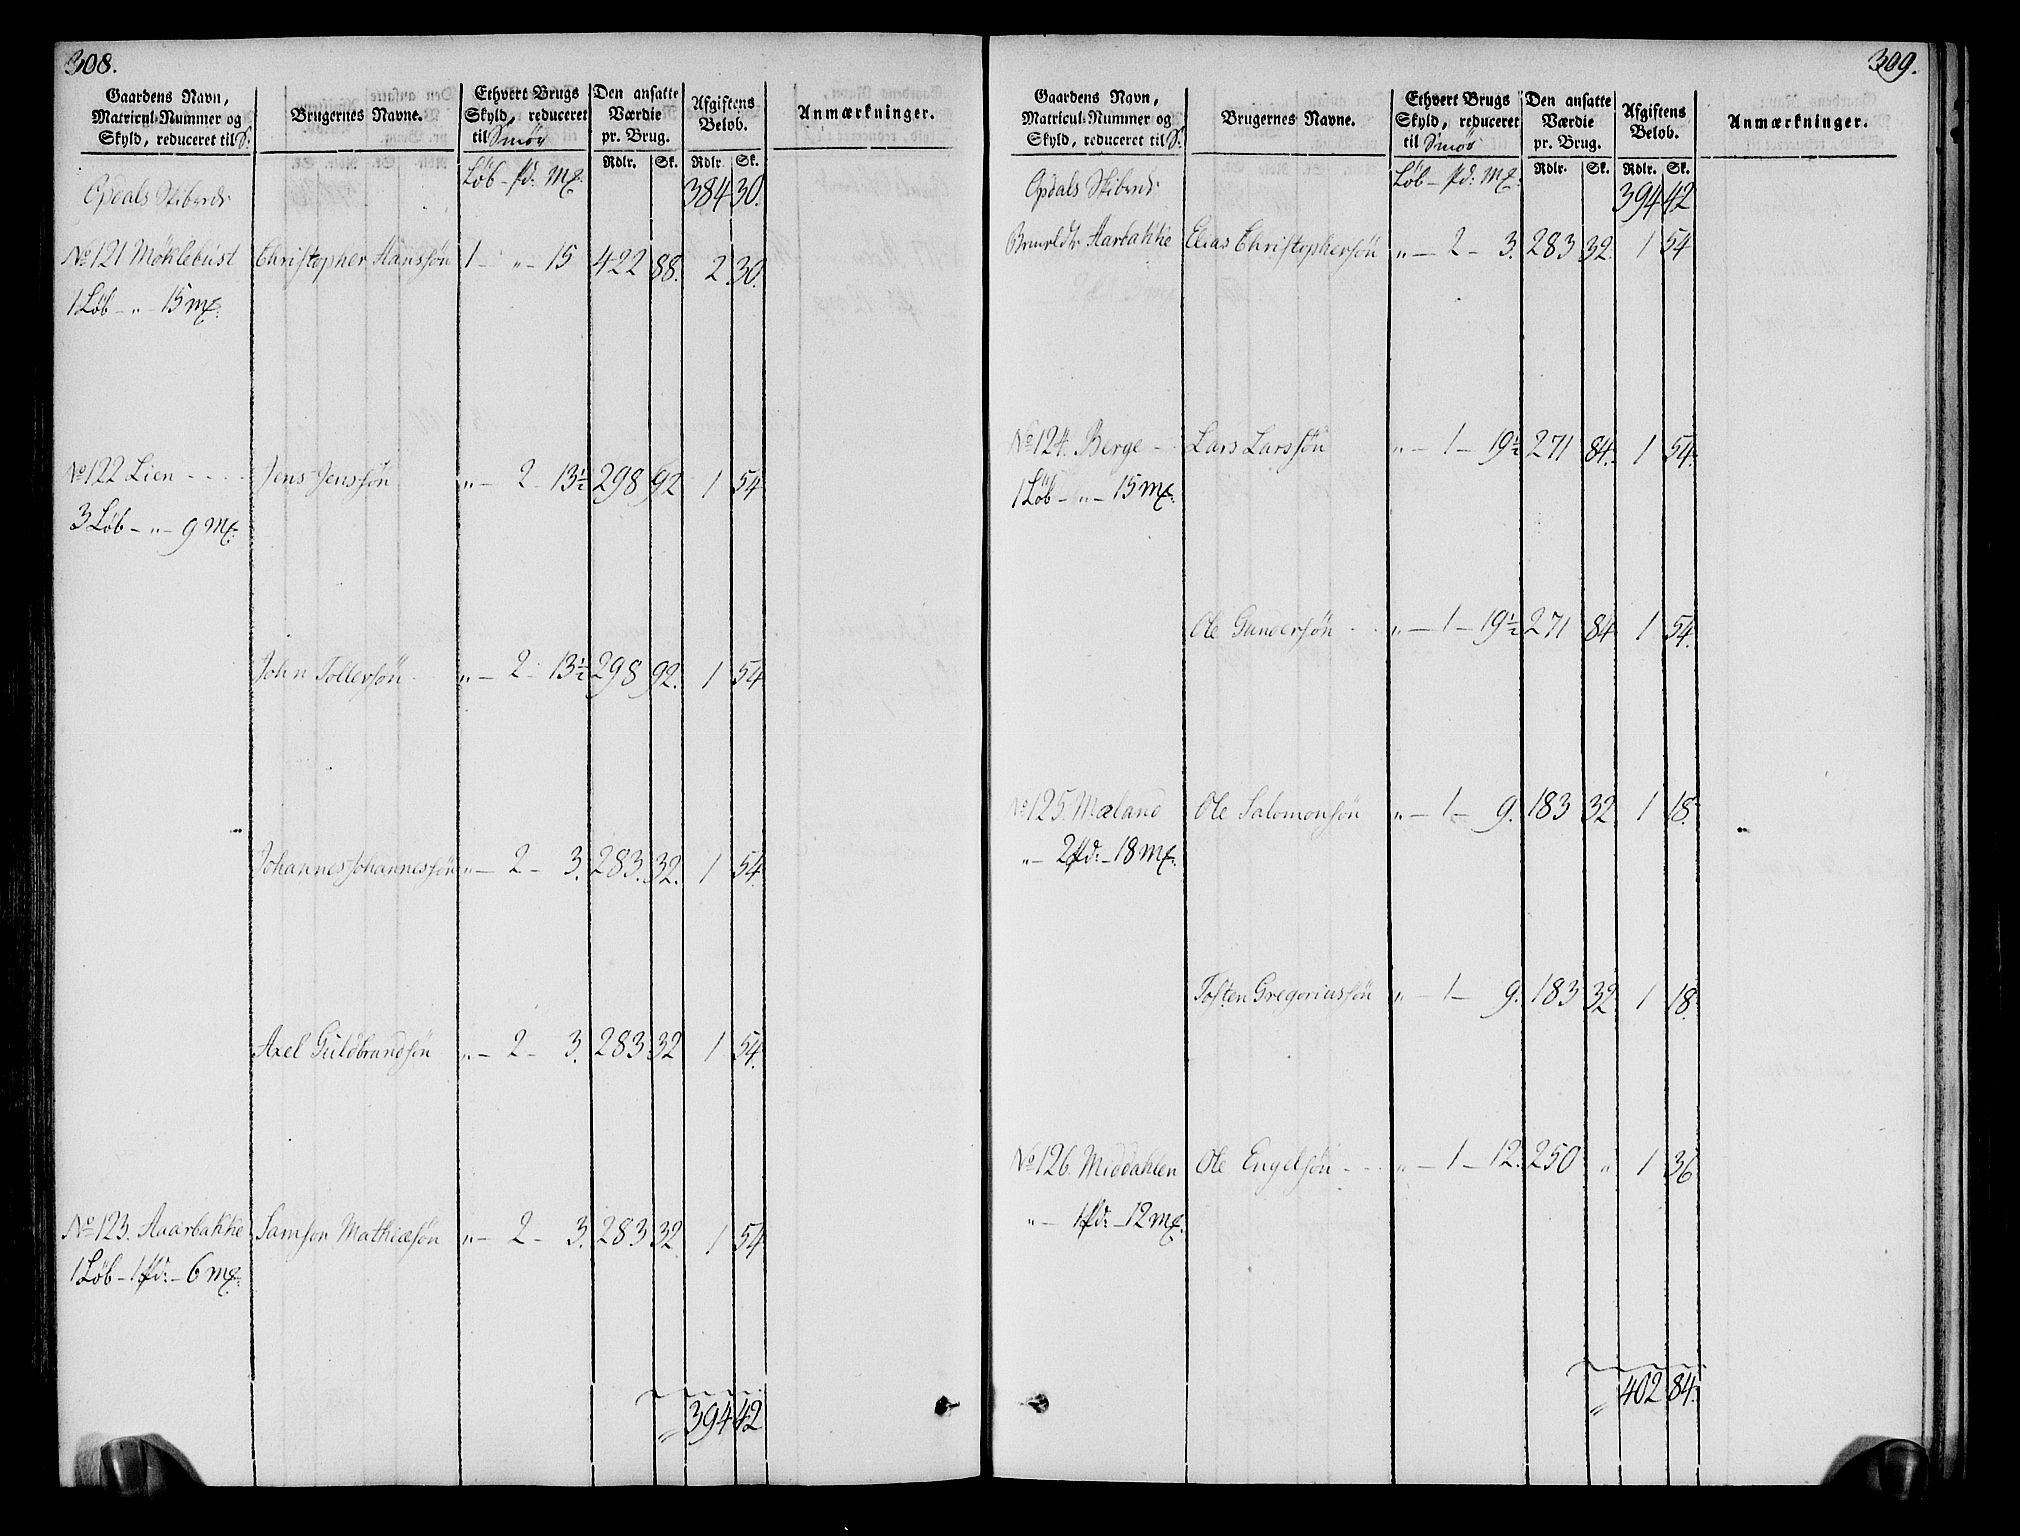 308.
Gaardens Navn, Matricul-Nummer og Skyld, reduceret til S. | Brugernes Navne. | Ethvert Brugs Skyld, reduceret til Smör | Den ansatte Værdie pr. Brug. | Afgiftens Beløb. | Anmærkninger.
Løb - pd: Mk: | Rdlr. | Sk. | Rdlr. | Sk.
Opdals Skibrede 384 30.
No 121 Møhlebust Christopher Hansøn 1 - „ - 15 422 88. 2 30.
1 Løb - „ - 15 mk:
No 122 Lien - - - Jens Jensøn „ - 2 - 13½ 298 92 1 54
3 Løb - „ - 9 mk:
John Tollersøn „ - 2 - 13½ 298 92. 1 54
Johannes Johannessøn „ - 2 - 3. 283. 32. 1 54.
Axel Guldbrandsøn „ - 2 - 3. 283 32 1 54.
No 123. Aaarbakke Samson Mathiesøn „ - 2 - 3. 283 32. 1 54
1 Løb - 1 pd: - 6 mk:
„ 394 42
309.
Gaardens Navn, Matricul-Nummer og Skyld, reduceret til S. | Brugernes Navne. | Ethvert Brugs Skyld, reduceret til Smör | Den ansatte Værdie pr. Brug. | Afgiftens Beløb. | Anmærkninger.
Løb - pd: Mk: | Rdlr. | Sk. | Rdlr. | Sk.
Opdals Skibrede 394 42
Aarbakke Elias Christophersøn „ - 2 - 3. 283 32. 1 54
No 124. Berge - Lars Larssøn „ - 1 - 19½ 271 84. 1 54.
1 Løb - „ - 15 mk:
Ole Gundersøn - - „ - 1 - 19½ 271 84 1 54.
No 125. Mæland Ole Salomonsøn „ - 1 - 9. 183 32 1 18.
„ - 2 pd: - 18 mk:
Tosten Gregoriussøn „ - 1 - 9. 183 32. 1 18.
No 126. Middahlen Ole Engelsøn - - - „ - 1 - 12. 250 „ 1 36
„ - 1 pd: - 12 mk:
„ 402 84.